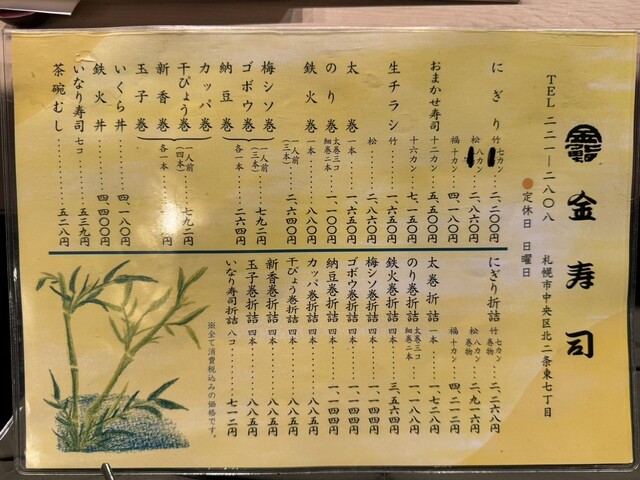 金寿司
札幌市中央区北二条東七丁目
TEL 二二一―二八〇八
定休日 日曜日
にぎり 竹 七カン 二、二〇〇円
松 八カン 二、八六〇円
福 十カン 四、一八〇円
おまかせ寿司 十二カン 五、五〇〇円
十六カン 七、一五〇円
生チラシ 竹 一、六五〇円
松 二、八六〇円
太巻 一本 一、六五〇円
のり巻 太巻三コ 細巻二本 一、一〇〇円
鉄火巻 一本 八八〇円
一人前(三本) 二、六四〇円
梅シソ巻
ゴボウ巻
納豆巻
一人前(三本) 七九二円
各一本 二六四円
カッパ巻
干ぴょう巻
新香巻
玉子巻
一人前(四本) 七九二円
各一本
いくら丼 四、一八〇円
鉄火丼 四、四〇〇円
いなり寿司 七コ 五三九円
茶碗むし 五二八円
にぎり折詰 竹 七カン 巻物 二、二六八円
松 八カン 巻物 二、九一六円
福 十カン 四、二一二円
太巻折詰 一本 一、七二八円
のり巻折詰 太巻三コ 細巻二本 一、一八八円
鉄火巻折詰 四本 三、五六四円
梅シソ巻折詰 四本 一、一四四円
ゴボウ巻折詰 四本 一、一四四円
納豆巻折詰 四本 一、一四四円
カッパ巻折詰 四本 八八五円
干ぴょう巻折詰 四本 八八五円
新香巻折詰 四本 八八五円
玉子巻折詰 四本 八八五円
いなり寿司折詰 八コ 七一二円
※全て消費税込みの価格です。